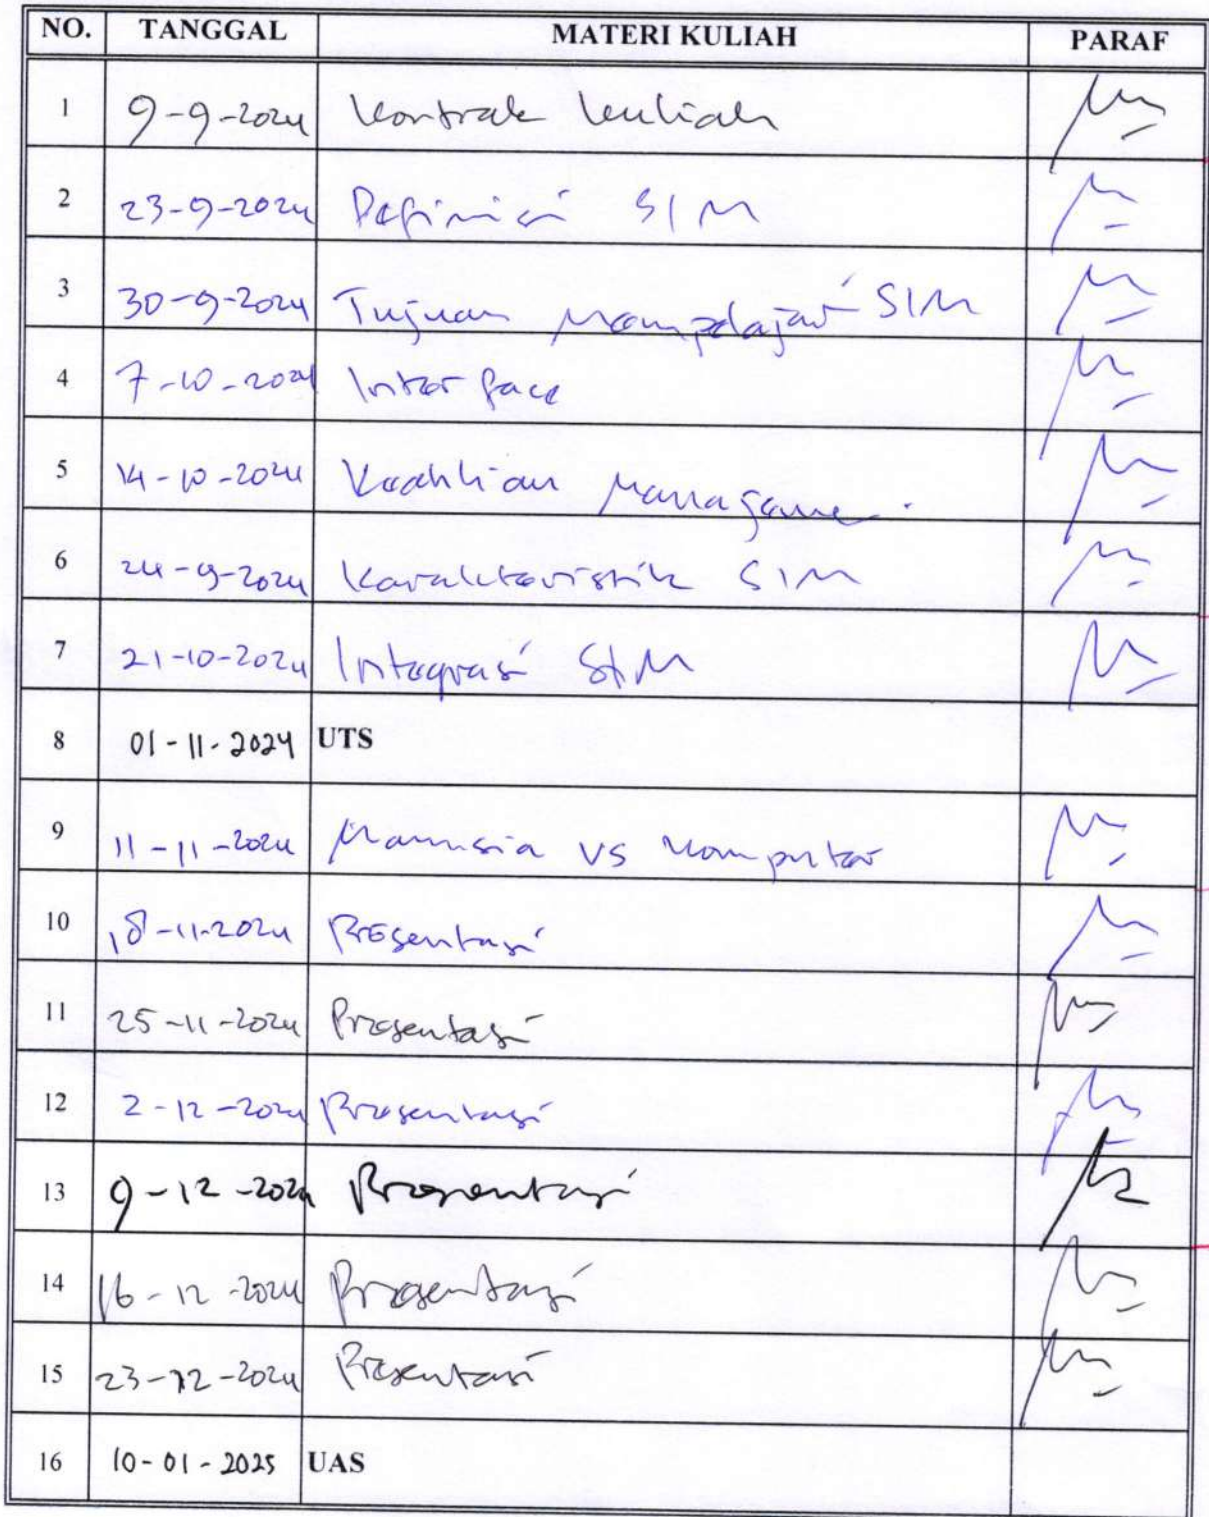 NO. TANGGAL MATERI KULIAH PARAF
1 9-9-2024 Kontrak kuliah
2 23-9-2024 Definisi SIM
3 30-9-2024 Tujuan Mempelajari SIM
4 7-10-2024 Interface
5 14-10-2024 Keahlian Manageme
6 24-9-2024 Karakteristik SIM
7 21-10-2024 Integrasi SIM
8 01-11-2024 UTS
9 11-11-2024 Manusia vs Komputer
10 18-11-2024 Presentasi
11 25-11-2024 Presentasi
12 2-12-2024 Presentasi
13 9-12-2024 Presentasi
14 16-12-2024 Presentasi
15 23-12-2024 Presentasi
16 10-01-2025 UAS